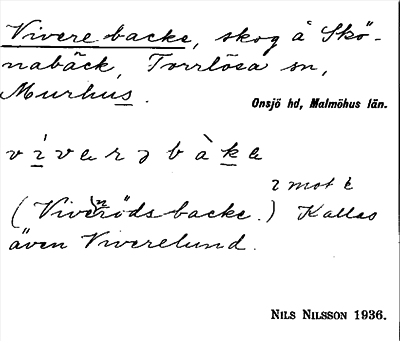 Vivere backe, skog å Skö-
nabäck, Torrlösa sn,
Murhus.
Onsjö hd, Malmöhus län.
v í v a r ə b à k a
ı mot è
(Viveröds backe.) Kallas
även Viverelund.
NILS NILSSON 1936.